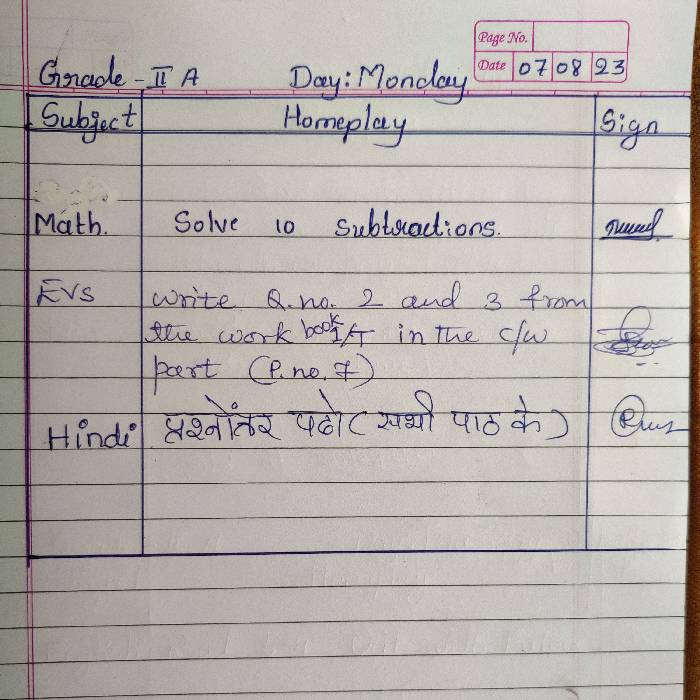 Page No.
Grade - II A Day: Monday Date 07 08 23
Subject Homeplay Sign
Math. Solve 10 subtractions.
EVS write Q.no. 2 and 3 from
the work book I/T in the c/w
part (P.no. 7)
Hindi प्रश्नोंतर पढो (सभी पाठ के)